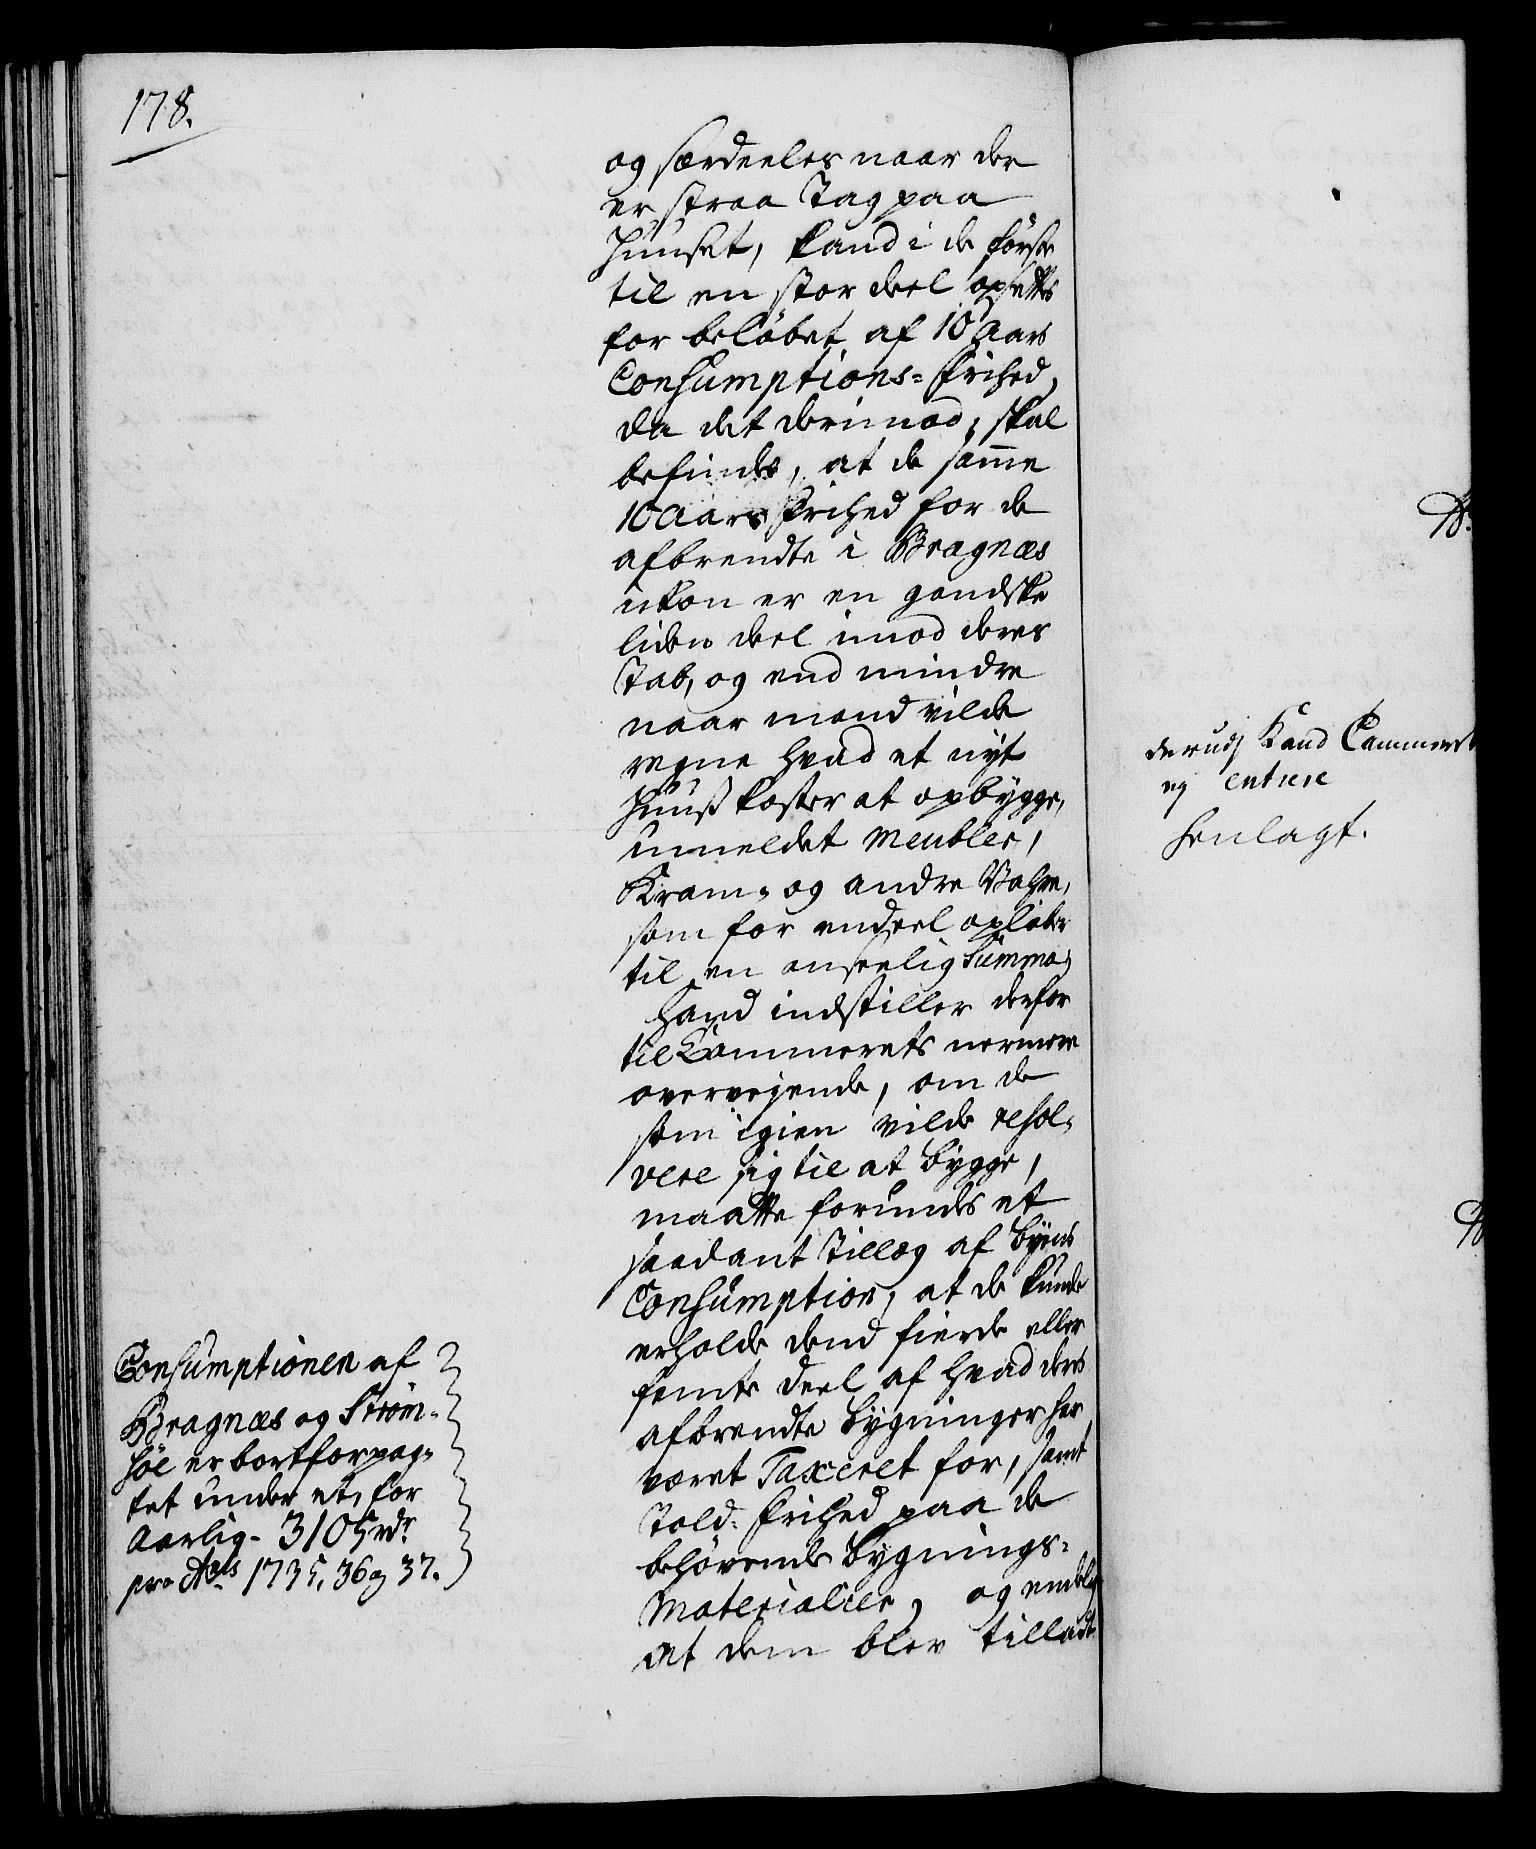 178.
og særdeeles naar der
er straa Tag paa
Huuset, kand i de første
til en stor deel opsettes
for beløbet af 10 Aars
Consumptions-Frihed,
da det derimod, skal
befindes, at de samme
10 Aars Frihed for de
afbrendte i Bragnæs
ikon er en gandske
liden deel imod deres
Tab, og end mindre
naar mand vilde
regne hvad et nyt
Huuß koster at opbygge,
umeldet Meubler,
Kram- og andre Vahre,
som for endeel opløber
til en anseelig Summa,
Hand indstiller derfor
til Cammerets nermere
overvejende, om de
som igien vilde resol-
vere sig til at bygge,
maatte forundes et
saadant Tillæg af Byens
Consumption, at de kunde
erholde dend fierde eller
femte deel af hvad deres
afbrendte Bygninger har
været Taxeret for, samt
Told-Frihed paa de
behøvende Bygnings-
Materialier, og endelig
at dem blev tilladt
Consumptionen af
Bragnæs og Strøm-
søe er bortforpag-
tet under et, for
Aarlig - 3105 rdr
pro Ao 1735, 36 og 37.
derudj Kand Cammeret
ej entrere
henlagt.